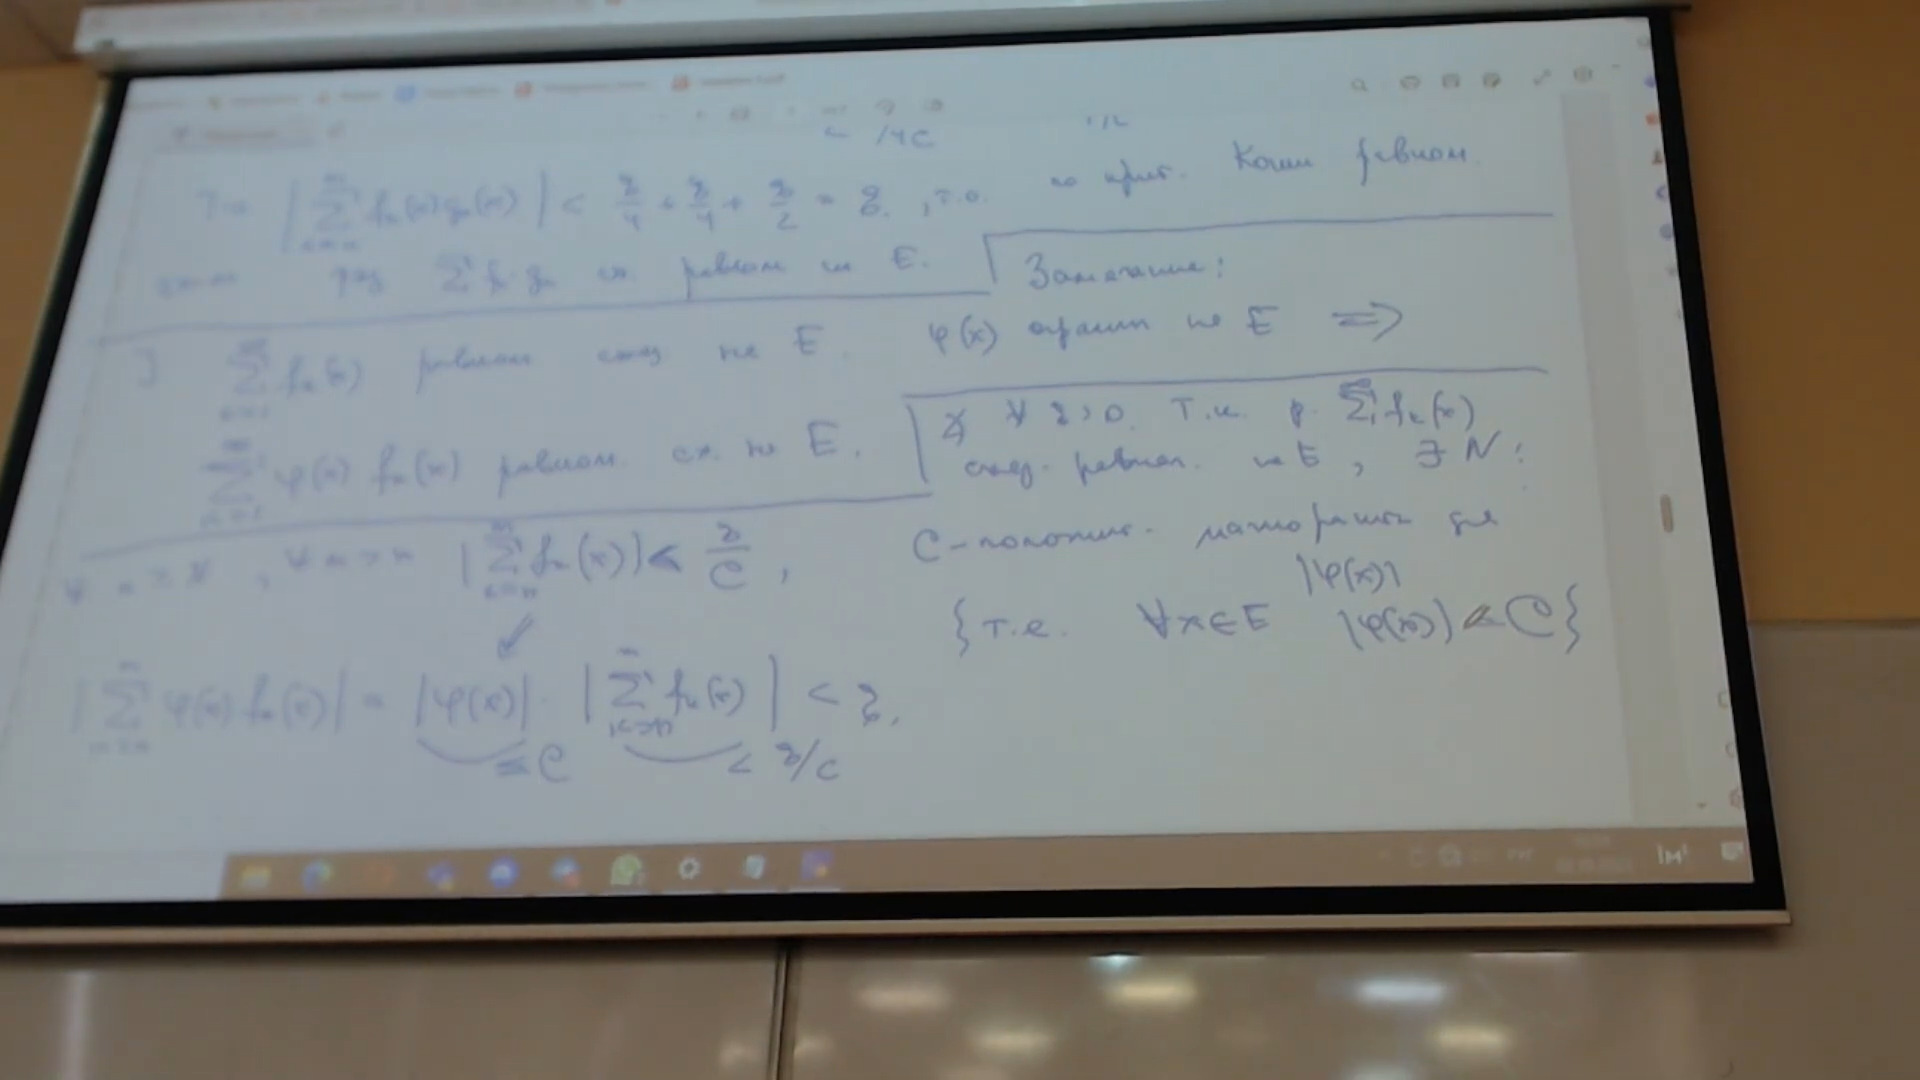 | ∑ fₖ(x) gₖ(x) | < ε/4 + ε/4 + ε/2 = ε, т.о. по крит. Коши равном.
ряд ∑ fₖ gₖ сх. равном на E.
Замечание:
] ∑ fₖ(x) равном сход на E. φ(x) огранич на E ⇒
∑ φ(x) fₖ(x) равном. сх. на E.
∀ ε > 0. Т.к. р. ∑ fₖ(x)
сход. равном. на E, ∃ N:
∀ n > N, ∀ m > n | ∑ fₖ(x) | < ε/C,
C - положит. мажоранта для |φ(x)|
{ т.е. ∀x∈E |φ(x)| ≤ C }
| ∑ φ(x) fₖ(x) | = |φ(x)| · | ∑ fₖ(x) | < ε.
≤ C < ε/C